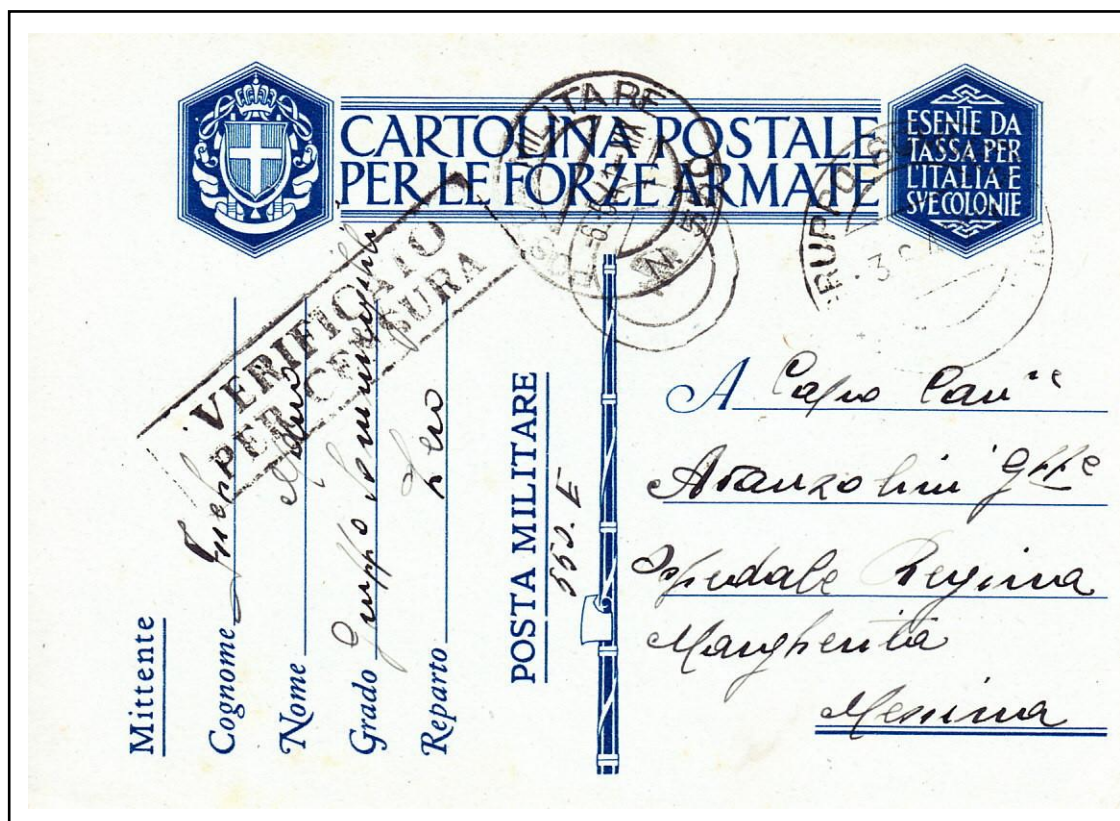 CARTOLINA POSTALE
PER LE FORZE ARMATE
ESENTE DA
TASSA PER
L'ITALIA E
SVE COLONIE
POSTA MILITARE
N. 550
VERIFICATO
PER CENSURA
Mittente
Cognome
Nome
Grado Gruppo Sommergibili
Reparto Lero
POSTA MILITARE
550. E
A Capo Can
Aranzolini
Ospedale Regina
Margherita
Messina